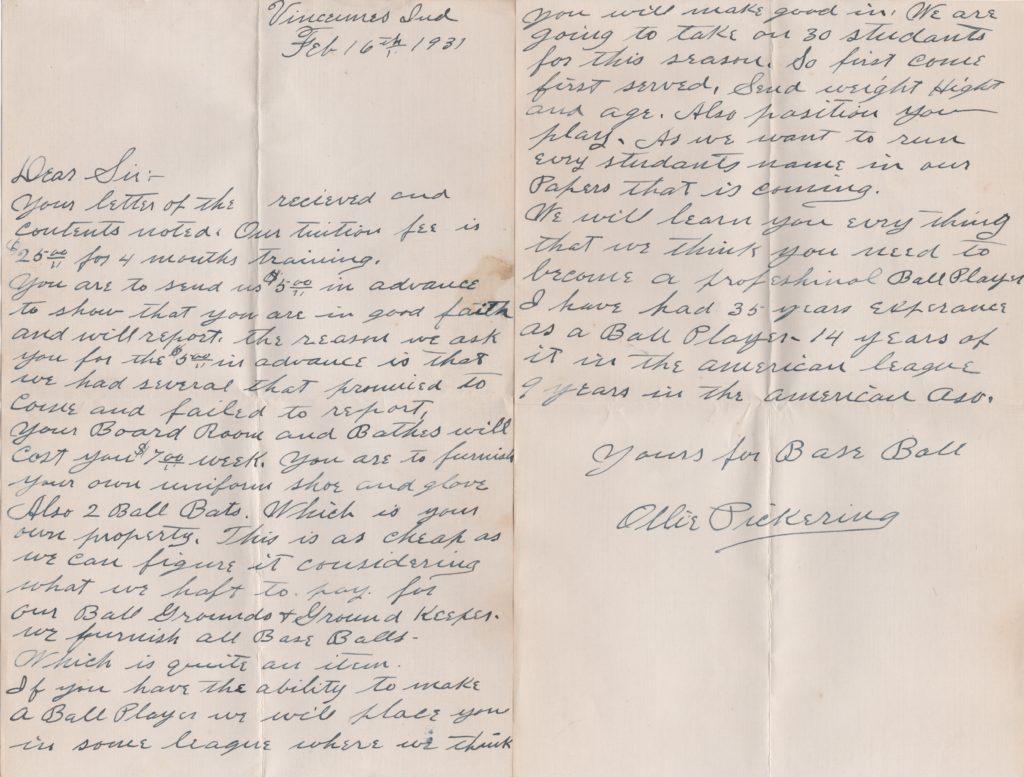 Vincennes Ind
Feb 16th 1931
Dear Sir:-
Your letter of the recieved and
contents noted. Our tuition fee is
$25.00 for 4 months training.
You are to send us $5.00 in advance
to show that you are in good faith
and will report. the reason we ask
you for the $5.00 in advance is that
we had several that promied to
come and failed to report,
Your Board Room and Bathes will
cost you $7.00 week. You are to furnish
your own uniform shoe and glove
Also 2 Ball Bats. Which is your
own property. This is as cheap as
we can figure it considering
what we haft to pay for
our Ball Grounds & Ground Keeper.
we furnish all Base Balls-
Which is quite an item.
If you have the ability to make
a Ball Player we will place you
in some league where we think
you will make good in. We are
going to take on 30 students
for this season. So first come
first served, Send weight Hight
and age. Also position you
play. As we want to run
evry students name in our
Papers that is coming.
We will learn you evry thing
that we think you need to
become a profeshinal Ball Player
I have had 35 years experance
as a Ball Player- 14 years of
it in the american league
9 years in the american Aso.
Yours for Base Ball
Ollie Pickering